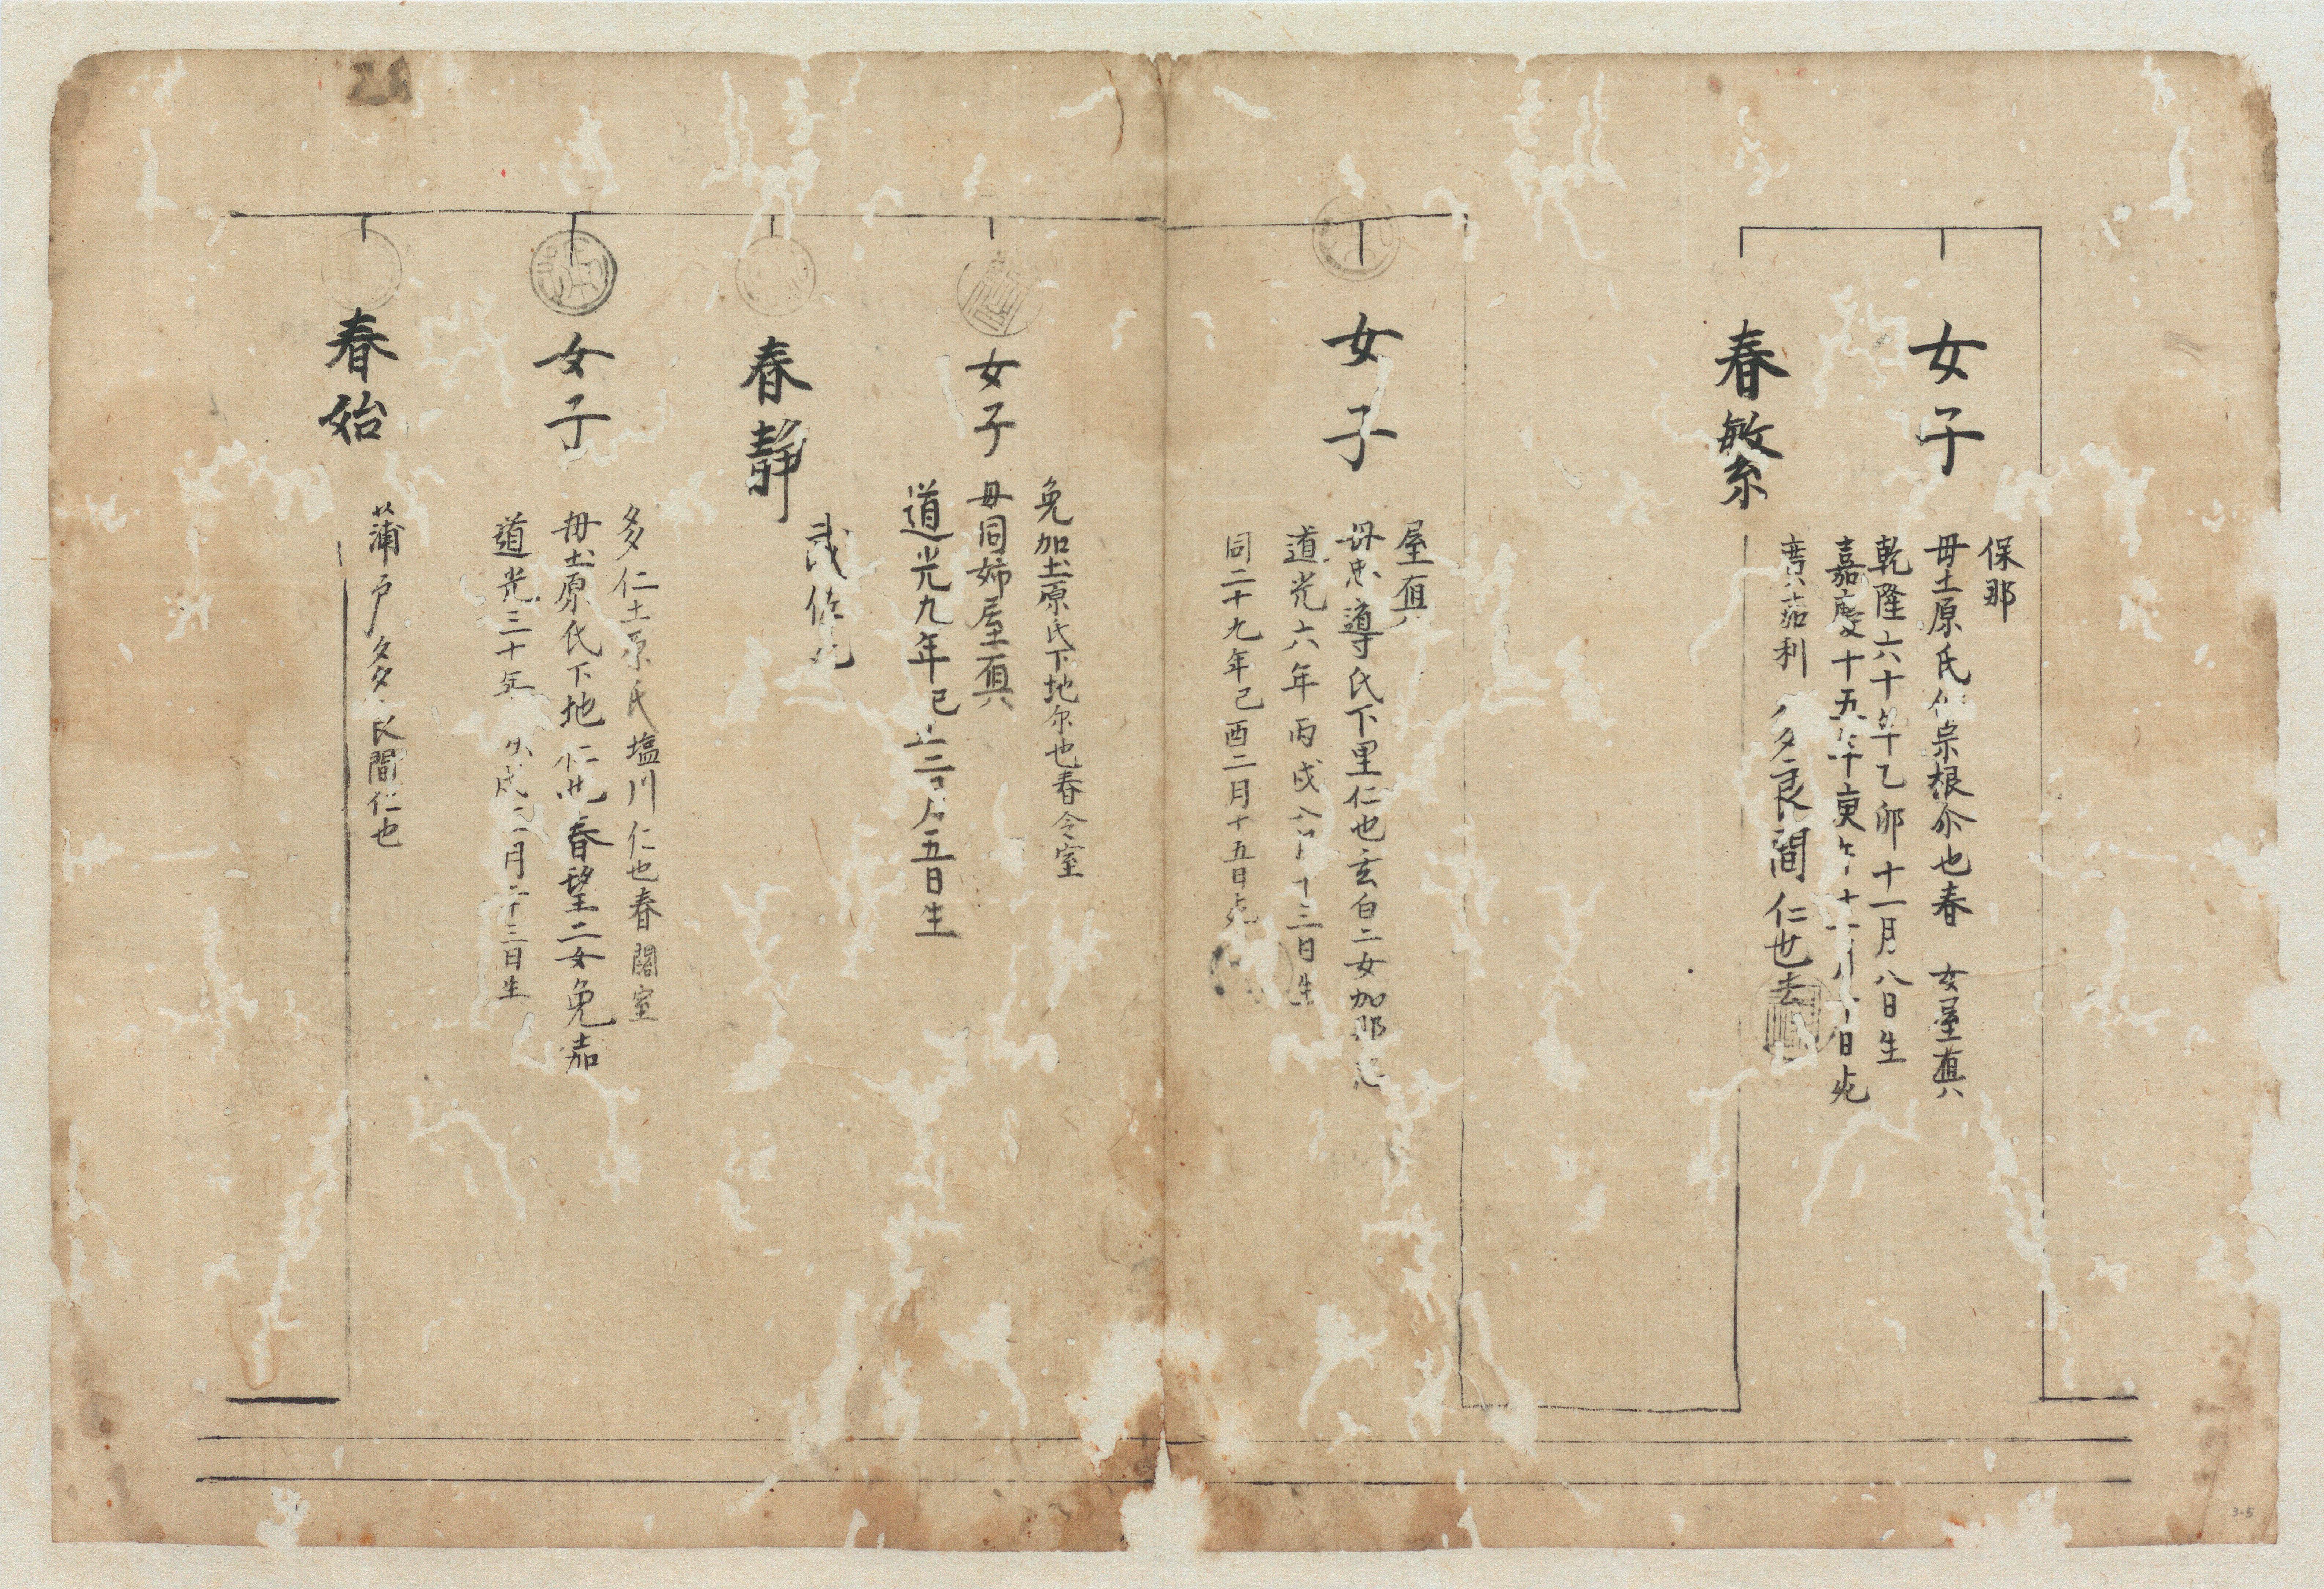 女子
保那
母土原氏 宗根尓也春 女屋真
乾隆六十年乙卯十一月八日生
嘉慶十五年庚午十 日死
春繁
廣茄利 多良間仁也
女子
屋真
母忠導氏下里仁也玄白二女加那
道光六年丙戌 十三日生
同二十九年己酉二月十五日死
免加土原氏下地尓也春令室
女子
母同姉屋真
道光九年己丑 五日生
春静
武佐
多仁土原氏塩川仁也春閣室
女子
母土原氏下地仁也春望二女免嘉
道光三十年 戌 月二十三日生
春始
蒲戸多良間仁也
3-5